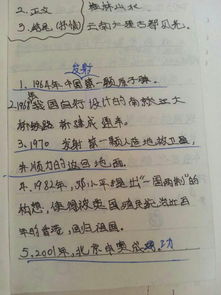 2. 正文 桂林山水
3. 结尾(抒情) 云南大理古都风光。
发射
1. 1964年,中国第一颗原子弹。
2. 1968年我国自行设计的南京长江大
桥铁路桥建成通车。
3. 1970 发射第一颗人造地球卫星,
并顺利的返回地面。
4. 1982年,邓小平提出“一国两制”的
构想,使得被英国殖民统治近百
年的香港,回归祖国。
5. 2001年,北京申奥成功